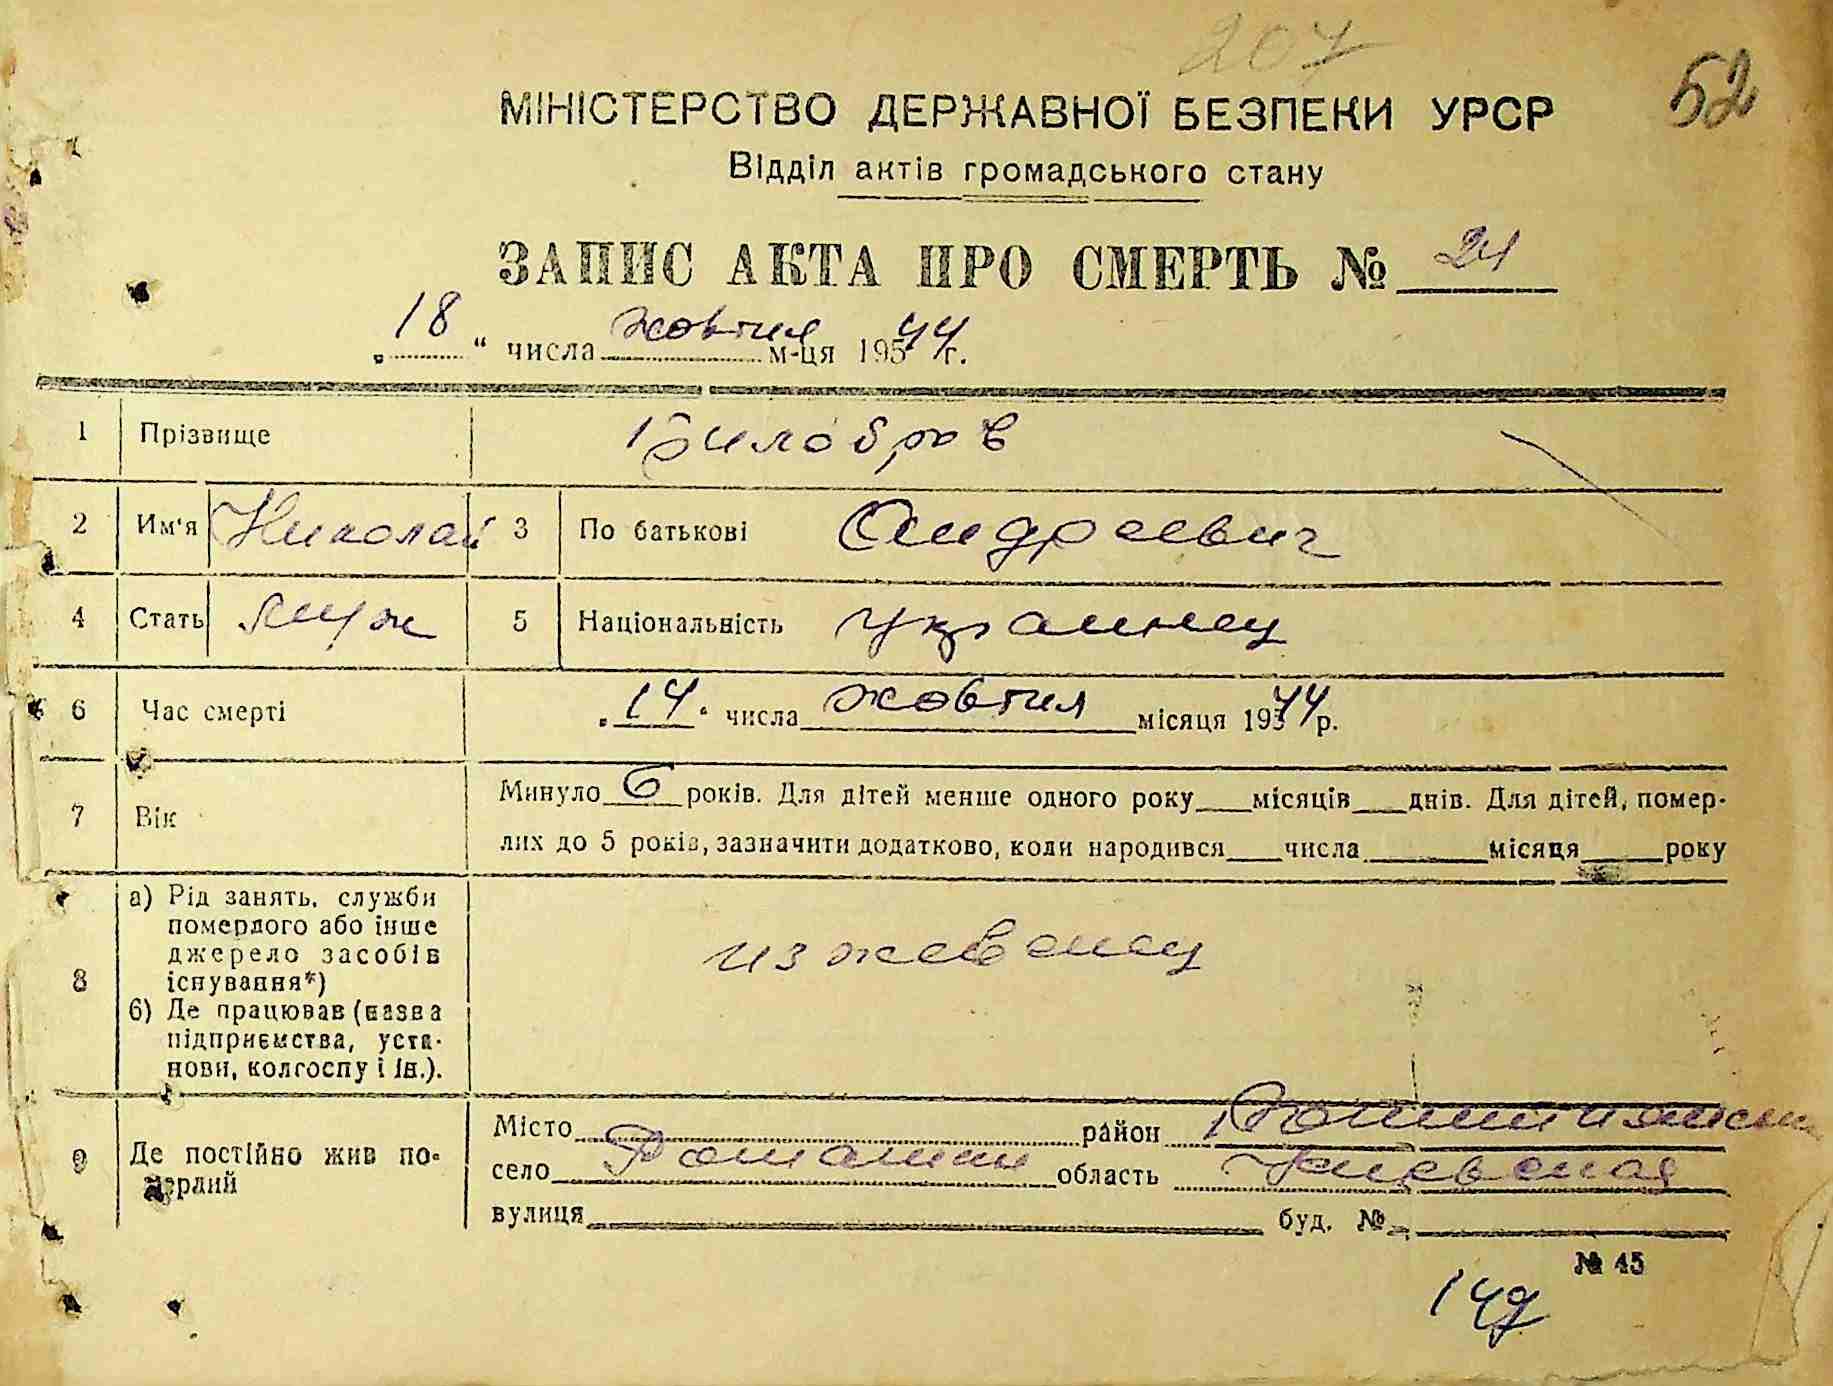 207
52
МІНІСТЕРСТВО ДЕРЖАВНОЇ БЕЗПЕКИ УРСР
Відділ актів громадського стану
ЗАПИС АКТА ПРО СМЕРТЬ № 24
„18“ числа жовтня м-ця 1944 г.
1 Прізвище Билобров
2 Им'я Николай 3 По батькові Андреевич
4 Стать муж 5 Національність украинец
6 Час смерті „14“ числа жовтня місяця 1944 р.
7 Вік Минуло 6 років. Для дітей менше одного року___місяців___днів. Для дітей, помер-
лих до 5 років, зазначити додатково, коли народився___числа______місяця____року
8 а) Рід занять, служби
померлого або інше
джерело засобів
існування*)
иждевенец
б) Де працював (назва
підприємства, уста-
нови, колгоспу і ін.).
9 Де постійно жив по-
мерлий
Місто район
село Ромашки область Киевская
вулиця буд. №
№ 45